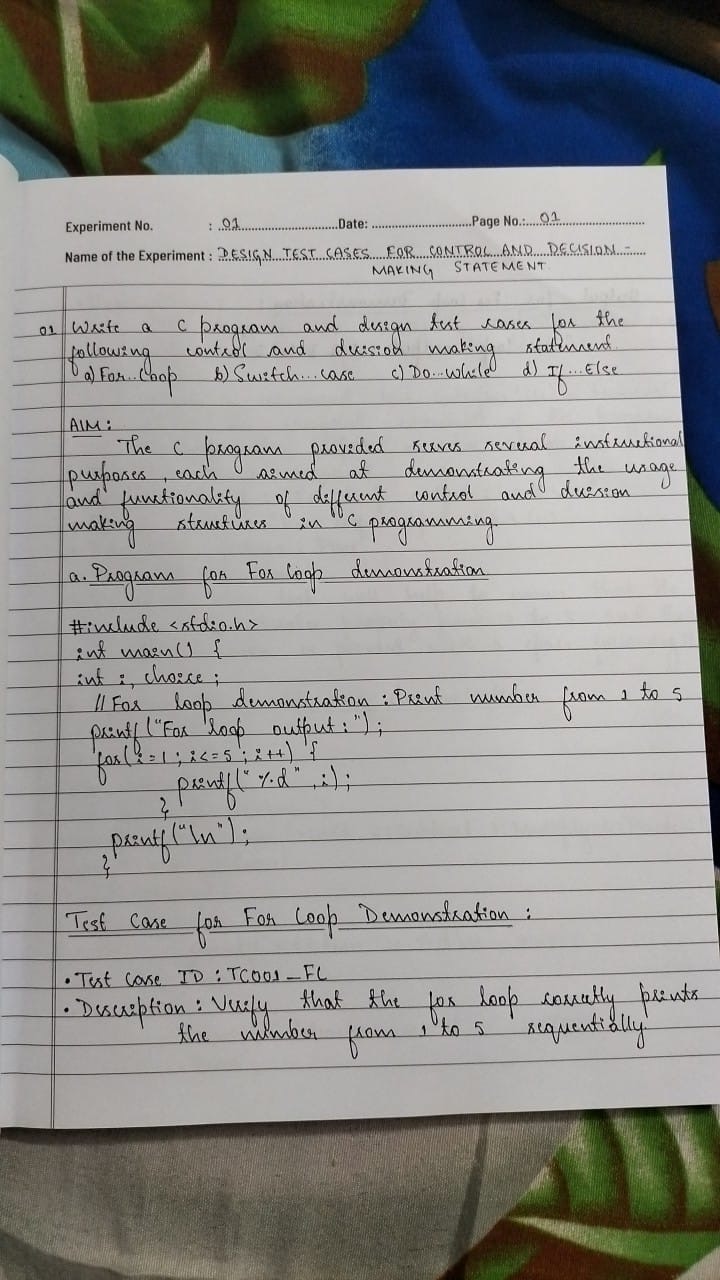 Experiment No. : 01 Date: Page No.: 01
Name of the Experiment : DESIGN TEST CASES FOR CONTROL AND DECISION -
MAKING STATEMENT
01 Write a C program and design test cases for the
following control and decision making statement
a) For..Loop b) Switch...case c) Do..While d) If...Else
AIM :
The C program provided serves several instructional
purposes, each aimed at demonstrating the usage
and functionality of different control and decision
making structures in C programming.
a. Program for For loop demonstration
#include <stdio.h>
int main() {
int i, choice ;
// For loop demonstration : Print number from 1 to 5
printf ("For loop output : ");
for(i=1 ; i<=5 ; i++) {
printf(" %d" , i);
}
printf("\n");
}
Test Case for For Loop Demonstration :
• Test Case ID : TC001_FL
• Description : Verify that the for loop correctly prints
the number from 1 to 5 sequentially.